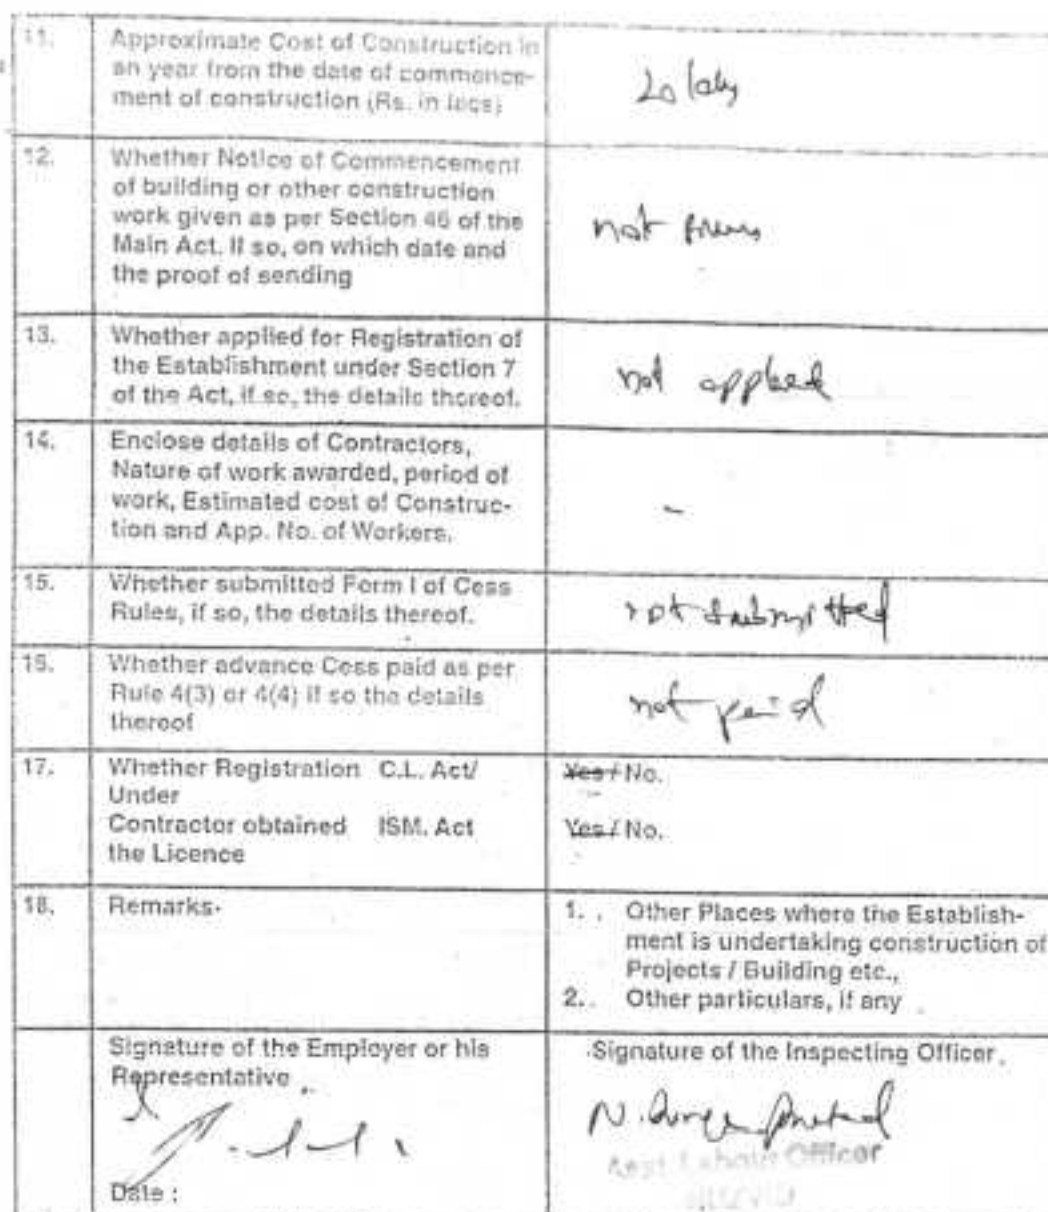 11. Approximate Cost of Construction in
an year from the date of commence-
ment of construction (Rs. in lacs)
20
12. Whether Notice of Commencement
of building or other construction
work given as per Section 46 of the
Main Act. If so, on which date and
the proof of sending
not
13. Whether applied for Registration of
the Establishment under Section 7
of the Act, if so, the details thereof.
not applied
14. Enclose details of Contractors,
Nature of work awarded, period of
work, Estimated cost of Construc-
tion and App. No. of Workers.
-
15. Whether submitted Form I of Cess
Rules, if so, the details thereof.
not submitted
16. Whether advance Cess paid as per
Rule 4(3) or 4(4) if so the details
thereof
not paid
17. Whether Registration C.L. Act/ Yes / No.
Under
Contractor obtained ISM. Act Yes / No.
the Licence
18. Remarks-
1. Other Places where the Establish-
ment is undertaking construction of
Projects / Building etc.,
2. Other particulars, if any
Signature of the Employer or his
Representative
Date :
Signature of the Inspecting Officer.
N.
Asst Labour Officer